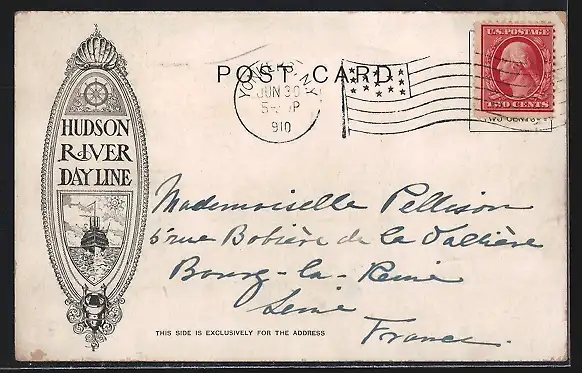 POST CARD
U.S. POSTAGE
TWO CENTS
YONKERS N.Y.
JUN 30
5-30P
1910
HUDSON
RIVER
DAY LINE
Mademoiselle Pellison
6 rue Bobière de la Vallière
Bourg-la-Reine
Seine
France.
THIS SIDE IS EXCLUSIVELY FOR THE ADDRESS